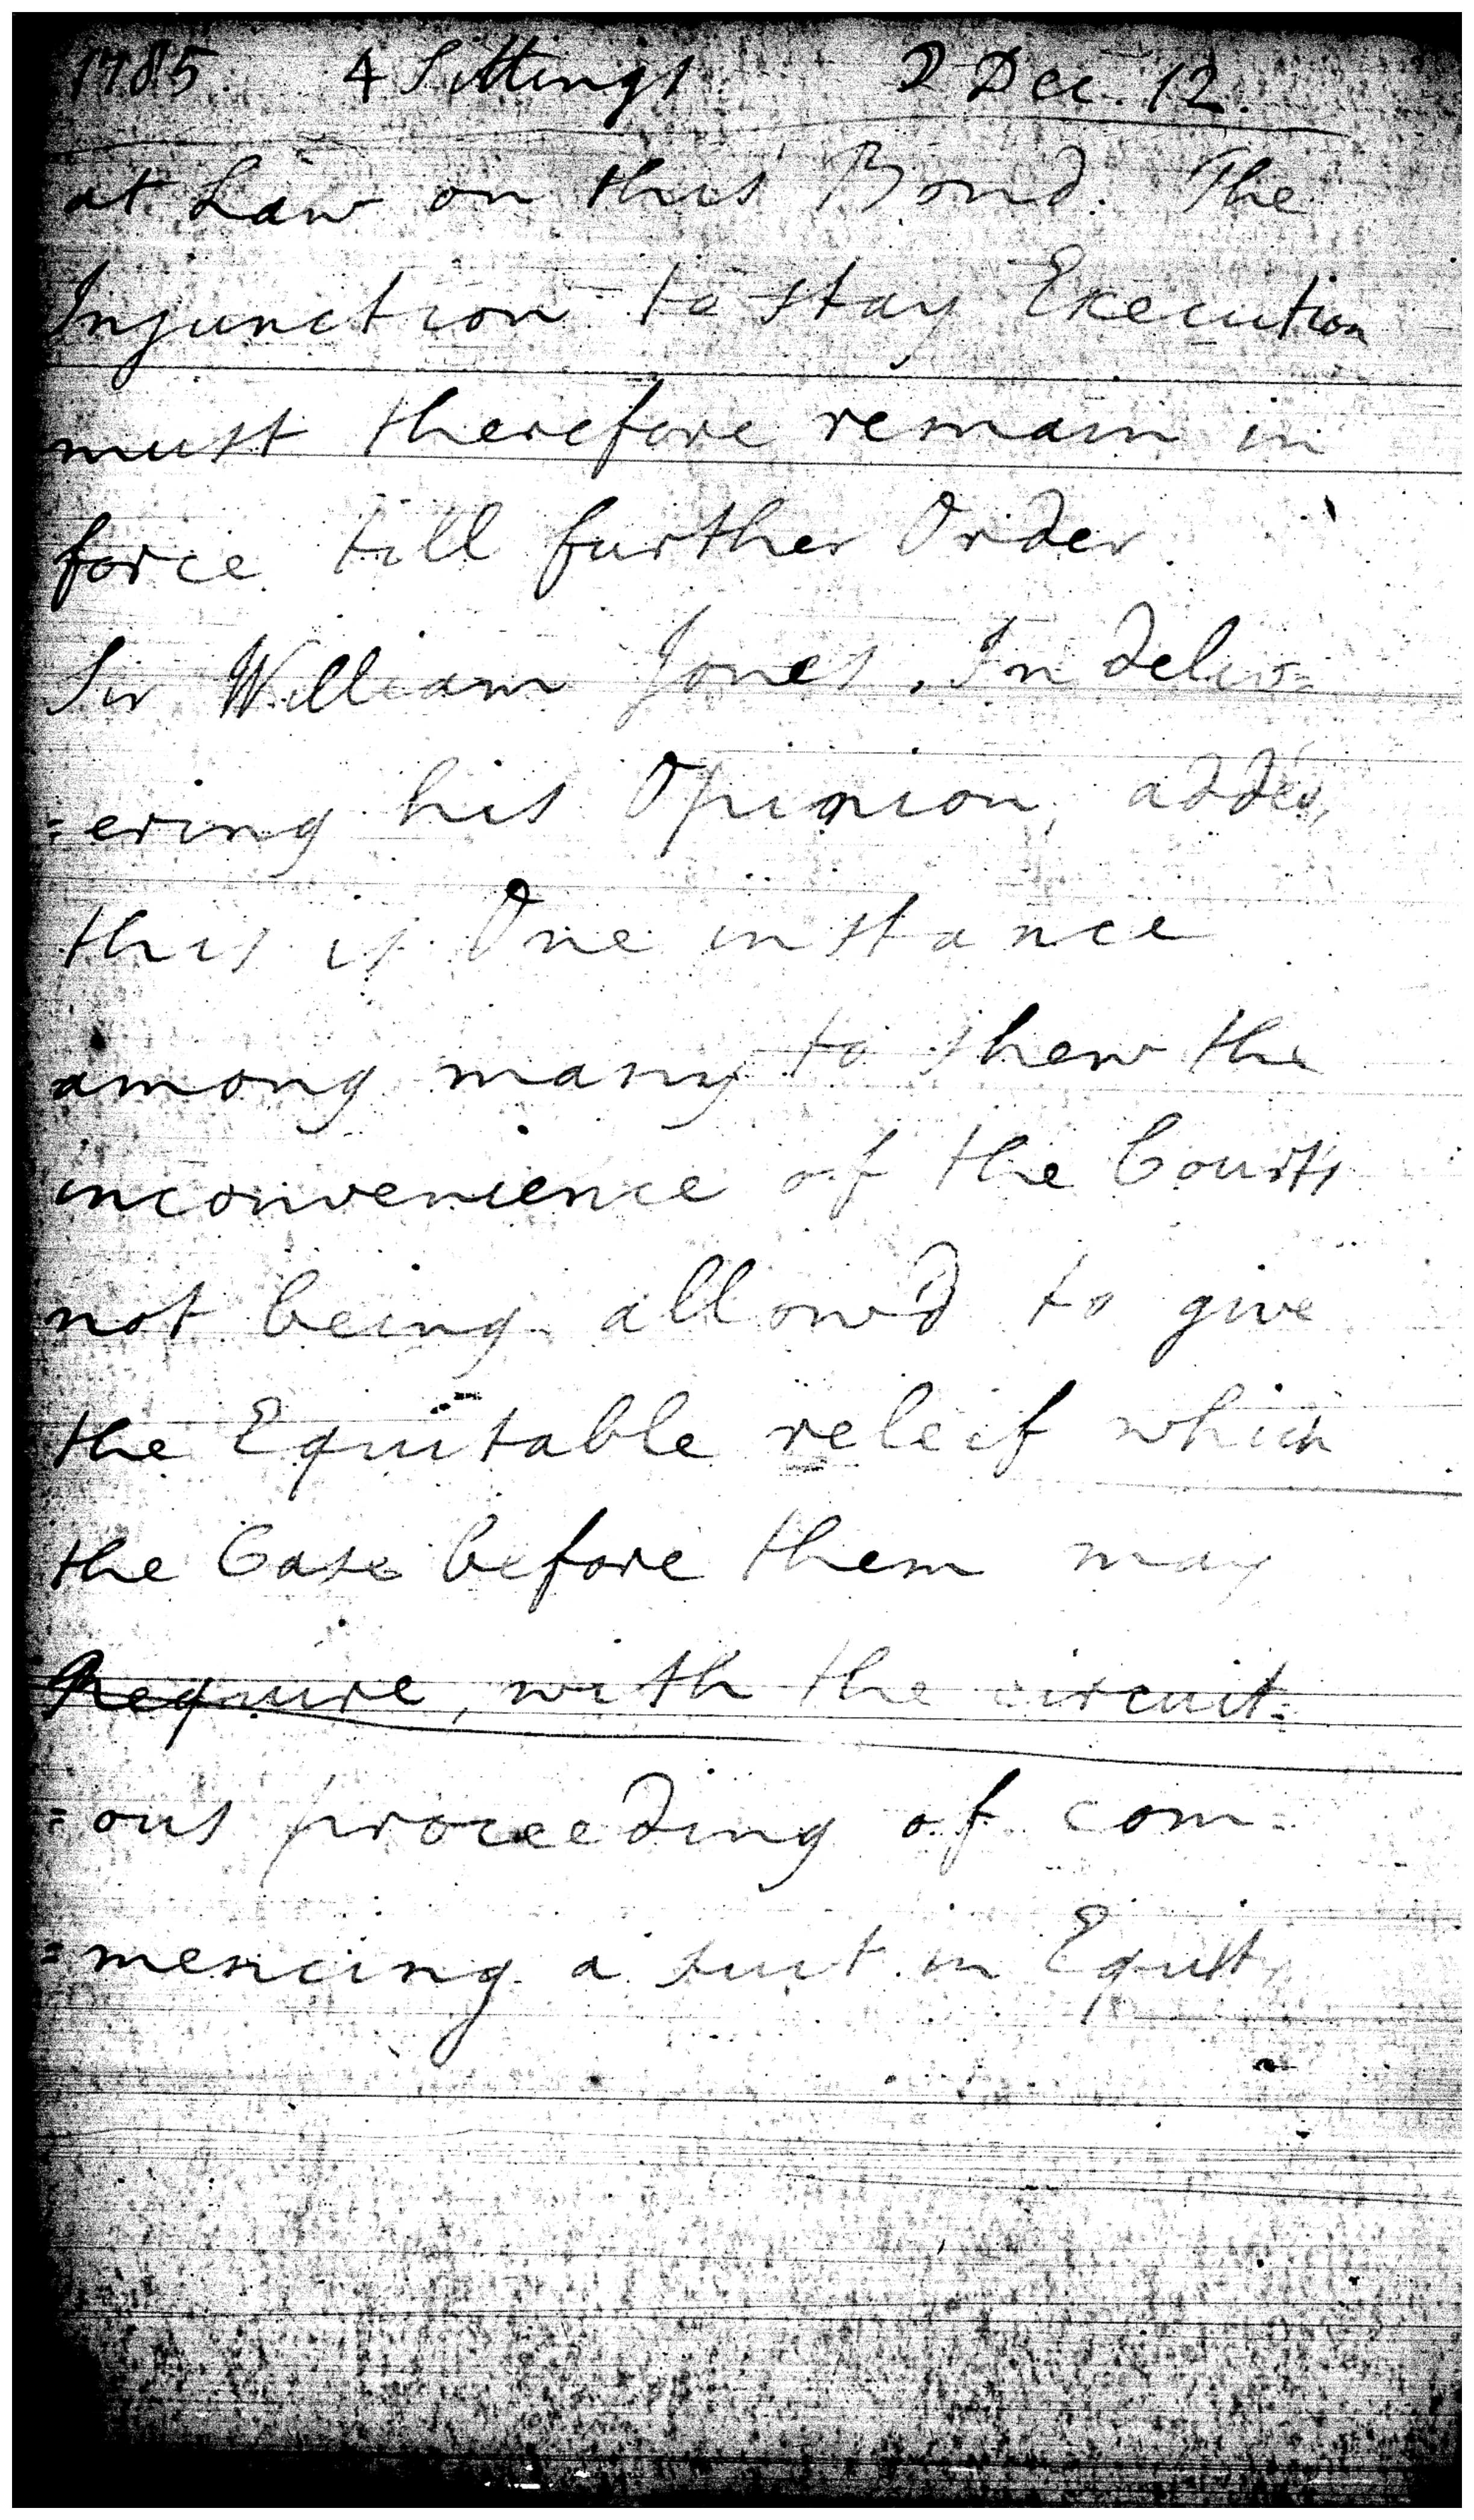 1785 4 Sittings 2 Dec. 12.
at Law on this Bond. The
Injunction to stay Execution
must therefore remain in
force till further Order.
Sir William Jones, In deliv=
=ering his Opinion, added,
this is One instance
among many to shew the
inconvenience of the Courts
not being allow'd to give
the Equitable releif which
the Case before them may
Require, with the circuit=
=ous proceeding of com=
=mencing a suit in Equity